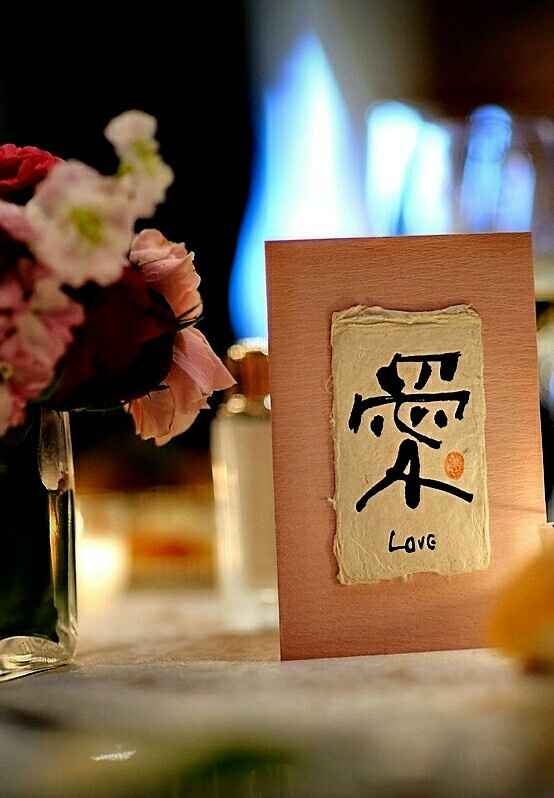 愛
LOVE